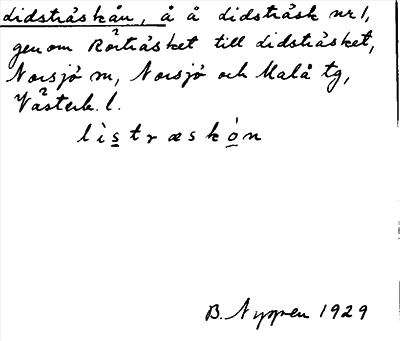 Lidsträskån, å å Lidsträsk nr 1,
genom Rörträsket till Lidsträsket,
Norsjö sn, Norsjö och Malå tg,
Västerb. l.
lìstræskón
B. Nyppen 1929